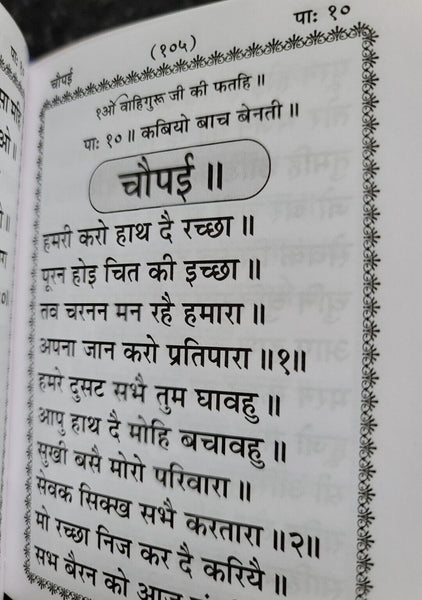 पाः १०
चौपई
(१०५)
१ओं वाहिगुरू जी की फतहि॥
पाः १०॥ कबियो बाच बेनती॥
चौपई॥
हमरी करो हाथ दै रच्छा॥
पूरन होइ चित की इच्छा॥
तव चरनन मन रहै हमारा॥
अपना जान करो प्रतिपारा॥१॥
हमरे दुसट सभै तुम घावहु॥
आपु हाथ दै मोहि बचावहु॥
सुखी बसै मोरो परिवारा॥
सेवक सिक्ख सभै करतारा॥२॥
मो रच्छा निज कर दै करियै॥
सभ बैरन को आज